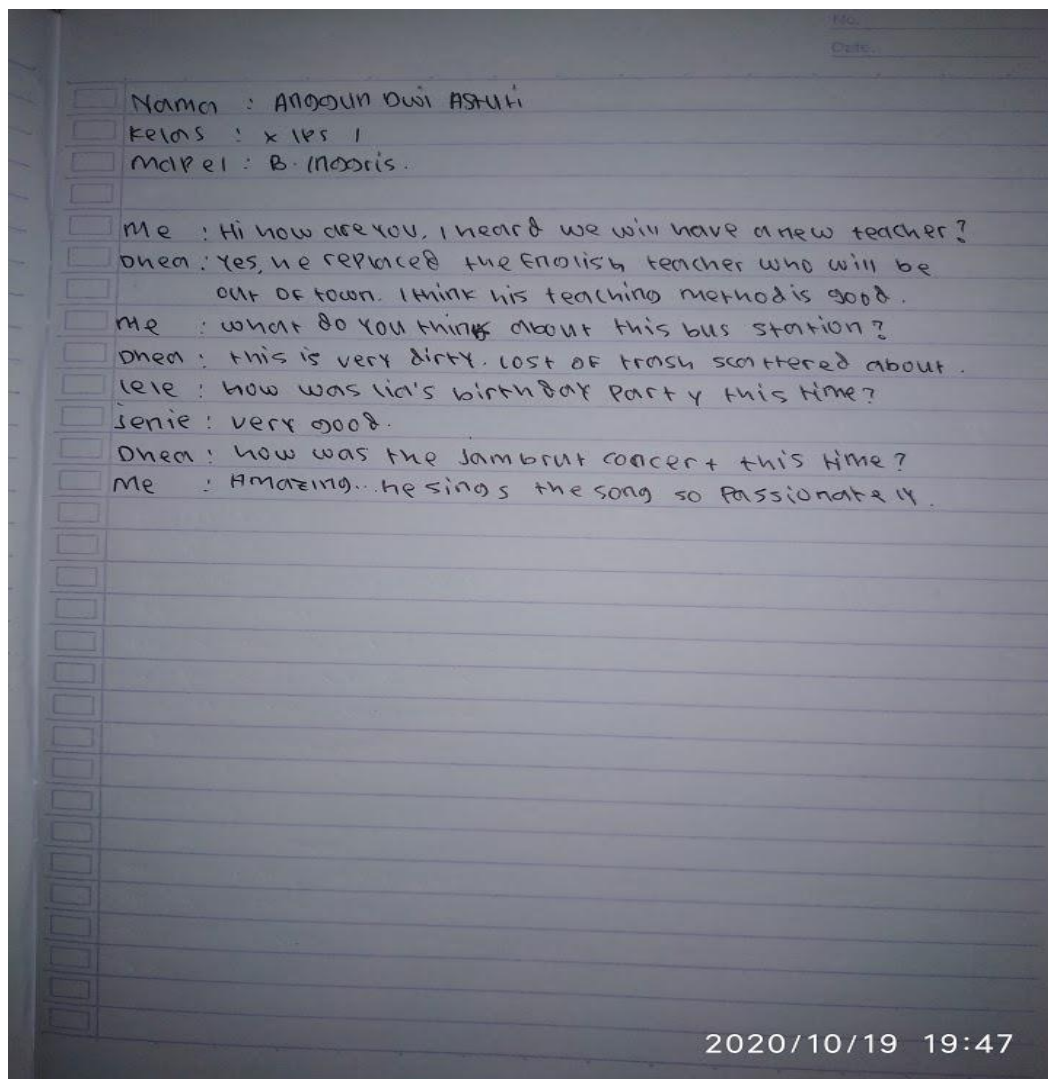 No.
Date.
Nama : Anggun Dwi Astuti
Kelas : X IPS 1
Mapel : B. Inggris.
Me : Hi how are you, I heard we will have a new teacher?
Dhea : Yes, he replaced the English teacher who will be
out of town. I think his teaching method is good.
Me : what do you things about this bus station?
Dhea : this is very dirty. Lost of trash scattered about.
lele : how was lia's birthday party this time?
jenie : very good.
Dhea : how was the Jambrut concert this time?
Me : Amazing.. he sings the song so passionately.
2020/10/19 19:47